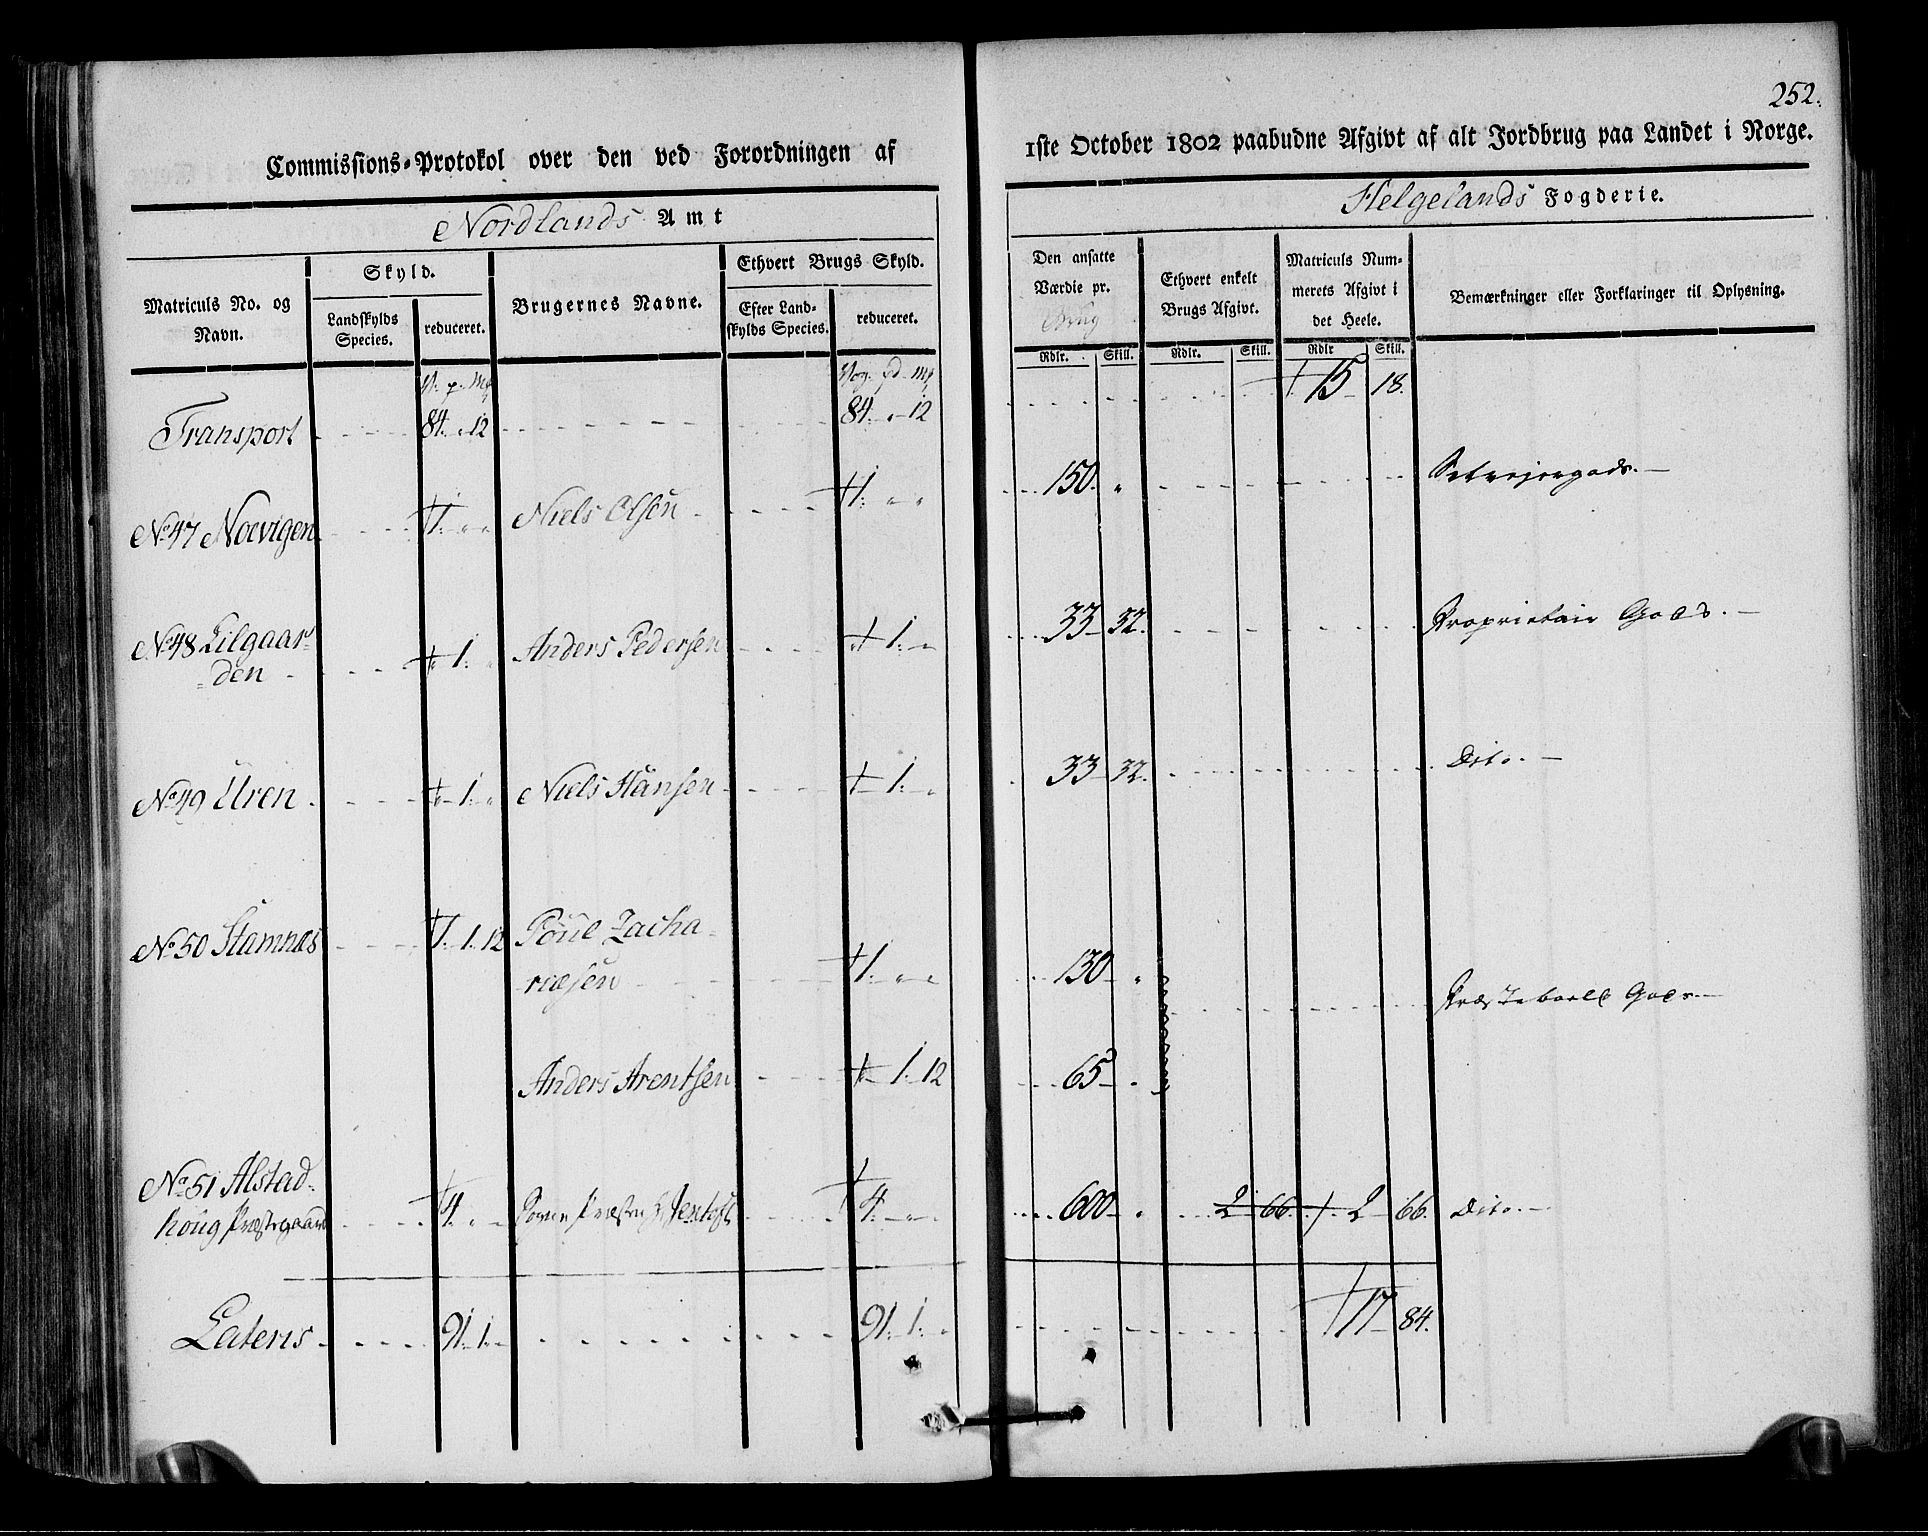 252.
Commissions-Protokol over den ved Forordningen af
1ste October 1802 paabudne Afgivt af alt Jordbrug paa Landet i Norge.
Nordlands Amt
Helgelands Fogderie.
Matriculs No. og Navn.
Skyld.
Landskylds Species.
reduceret.
Brugernes Navne.
Ethvert Brugs Skyld.
Efter Landskylds Species.
reduceret.
Den ansatte Værdie pr. Brug
Ethvert enkelt Brugs Afgivt.
Matriculs Nummerets Afgivt i det Heele.
Bemærkninger eller Forklaringer til Oplysning.
Rdlr. Skill. Rdlr. Skill. Rdlr Skill.
V. p. Mk Vog. pd. Mk
Transport 84. " 12 84. " 12 15 18.
No 47 Noevigen 1. " " Niels Olsen 1. " " 150. " Selveiergods.
No 48 Lilgaar=
=den " 1. " Anders Pedersen " 1. " 33 32. Proprietair Gods.
No 49 Uren " 1. " Niels Hansen 1. " 33 32. Dito.
No 50 Stamnæs 1. 1. 12 Poul Zacha=
riæsen 1. " " 130 " Præsteboell Gods.
Anders Arentsen " 1. 12 65 "
No 51 Alstad=
houg Præstegaard 4. " Hr Jentoft 4. " 600 " 2 66. 2 66. Dito.
Lateris 91. 1. " 91. 1. " 17 84.